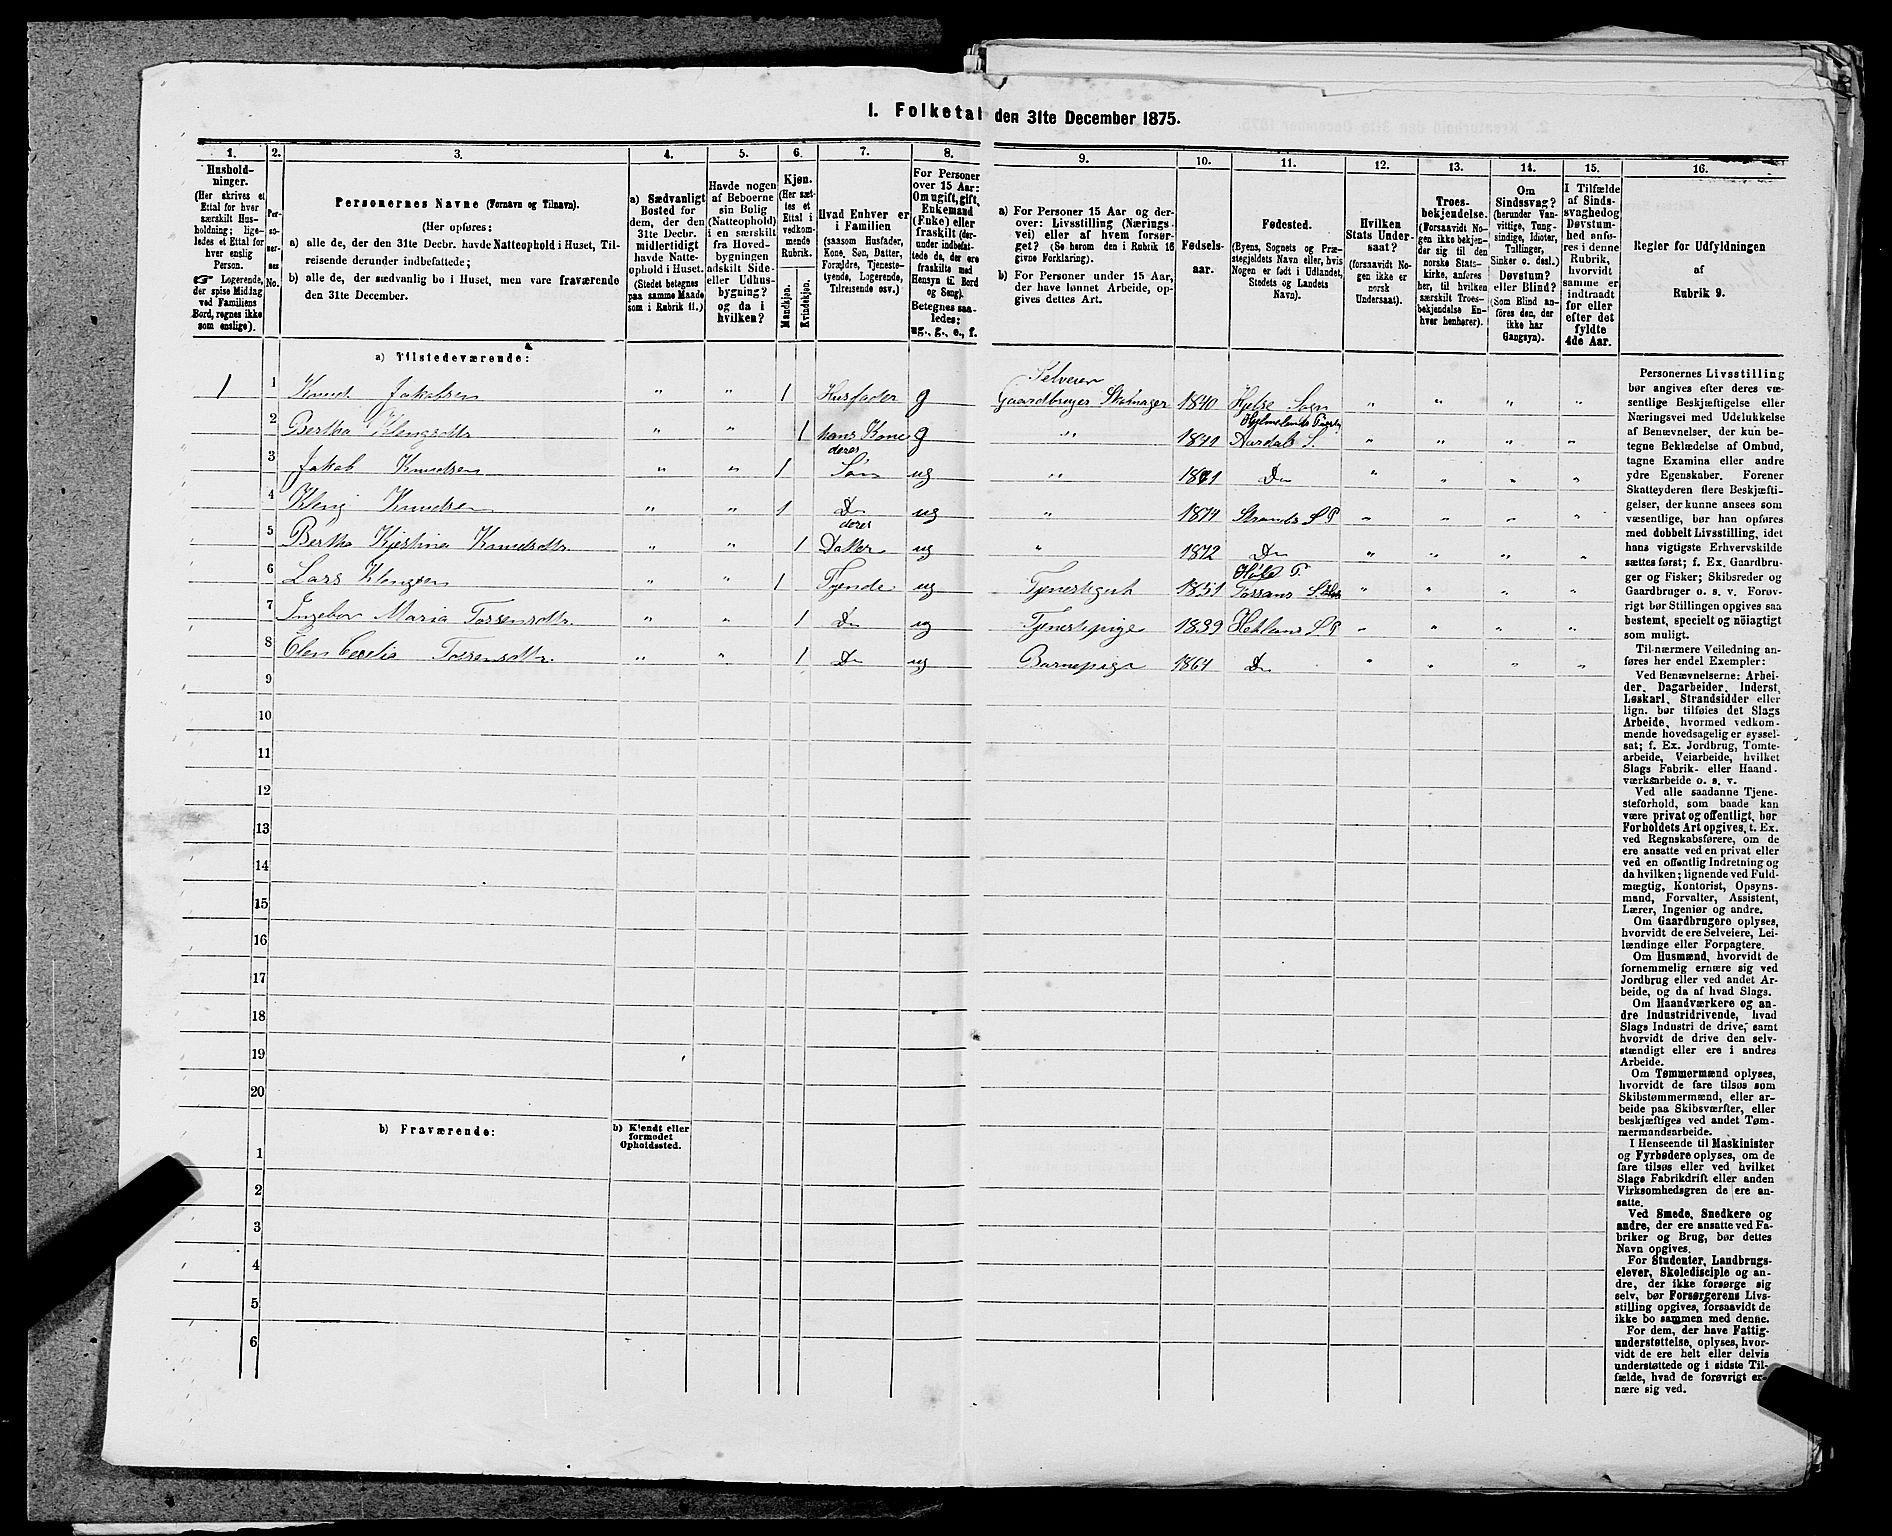 I. Folketal den 31te December 1875.
1. 2. 3. 4. 5. 6. 7. 8. 9. 10. 11. 12. 13. 14. 15. 16.
Hushold-
ninger.
(Her skrives et
Ettal for hver
særskilt Hus-
holdning; lige-
ledes et Ettal for
hver enslig
Person.
☞ Logerende,
der spise Middag
ved Familiens
Bord, regnes ikke
som enslige).
Per-
so-
ner-
nes
No.
Personernes Navne (Fornavn og Tilnavn).
(Her opføres:
a) alle de, der den 31te Decbr. havde Natteophold i Huset, Til-
reisende derunder indbefattede;
b) alle de, der sædvanlig bo i Huset, men vare fraværende
den 31te December.
a) Sædvanligt
Bosted for
dem, der den
31te Decbr.
midlertidigt
havde Natte-
ophold i Huset.
(Stedet betegnes
paa samme Maade
som i Rubrik 11.)
Havde nogen
af Beboerne
sin Bolig
(Natteophold)
i en særskilt
fra Hoved-
bygningen
adskilt Side-
eller Udhus-
bygning?
og da i
hvilken?
Kjøn.
(Her sæt-
tes et
Ettal i
vedkom-
mende
Rubrik.
Mandkjøn.
Kvindekjøn.
Hvad Enhver er
i Familien
(saasom Husfader,
Kone, Søn, Datter,
Forældre, Tjeneste-
tyende, Logerende,
Tilreisende osv.)
For Personer
over 15 Aar:
Om ugift, gift,
Enkemand
(Enke) eller
fraskilt (der-
under indbefat-
tede de, der ere
fraskilte med
Hensyn til Bord
og Seng).
Betegnes saa-
ledes:
ug., g., e., f.
a) For Personer 15 Aar og der-
over: Livsstilling (Nærings-
vei) eller af hvem forsør-
get? (Se herom den i Rubrik 16
givne Forklaring).
b) For Personer under 15 Aar,
der have lønnet Arbeide, op-
gives dettes Art.
Fødsels-
aar.
Fødested.
(Byens, Sognets og Præ-
stegjeldets Navn eller, hvis
Nogen er født i Udlandet,
Stedets og Landets
Navn).
Hvilken
Stats Under-
saat?
(forsaavidt No-
gen ikke er
norsk
Undersaat).
Troes-
bekjendelse.
(Forsaavidt No-
gen ikke bekjen-
der sig til den
norske Stats-
kirke, anføres
her, til hvilken
særskilt Troes-
bekjendelse En-
hver henhører).
Om
Sindssvag?
(herunder Van-
vittige, Tung-
sindige, Idioter,
Tullinger,
Sinker o. desl.)
Døvstum?
eller Blind?
(Som Blind an-
føres den, der
ikke har
Gangsyn).
I Tilfælde
af Sinds-
svaghed og
Døvstum-
hed anfø-
res i denne
Rubrik,
hvorvidt
samme er
indtraadt
før eller
efter det
fyldte
4de Aar.
Regler for Udfyldningen
af
Rubrik 9.
a) Tilstedeværende:
Selveier
1 1 Knud Jakobsen " " 1 Husfader g Gaardbruger 1840 Hjelse Sogn " " " "
Hjelmelands Præst.
2 Bertha Klengsdtr. " " 1 hans Kone g " 1841 Aardals S. " " " "
deres
3 Jakob Knudsen " " 1 Søn ug " Do " " " "
4 Kleng Knudsen " " 1 Do ug " 1874 Strands S P " " " "
deres
5 Bertha Kjestina Knudsdtr. " " 1 Datter ug " 1872 Do " " " "
Høle P.
6 Lars Klengsen " " 1 Tyende ug Tjenestegut 1851 Fossans S. " " " "
7 Ingebor Maria Tossensdtr. " " 1 Do ug Tjenestepige 1839 Hetlands S P " " " "
8 Elen Cecelia Tossensdtr. " " 1 Do ug Barnepige 1864 Do " " " "
9
10
11
12
13
14
15
16
17
18
19
20
b) Fraværende:
b) Kjendt eller
formodet
Opholdssted.
1
2
3
4
5
6
Personernes Livsstilling
bør angives efter deres væ-
sentlige Beskjæftigelse eller
Næringsvei med Udelukkelse
af Benævnelser, der kun be-
tegne Beklædelse af Ombud,
tagne Examina eller andre
ydre Egenskaber. Forener
Skatteyderen flere Beskjæfti-
gelser, der kunne ansees som
væsentlige, bør han opføres
med dobbelt Livsstilling, idet
hans vigtigste Erhvervskilde
sættes først; f. Ex. Gaardbru-
ger og Fisker; Skibsreder og
Gaardbruger o. s. v. Forøv-
rigt bør Stillingen opgives saa
bestemt, specielt og nöiagtigt
som muligt.
Til nærmere Veiledning an-
føres her endel Exempler:
Ved Benævnelserne: Arbei-
der, Dagarbeider, Inderst,
Løskarl, Strandsidder eller
lign. bør tilføies det Slags
Arbeide, hvormed vedkom-
mende hovedsagelig er syssel-
sat; f. Ex. Jordbrug, Tomte-
arbeide, Veiarbeide, hvilket
Slags Fabrik- eller Haand-
værksarbeide o. s. v.
Ved alle saadanne Tjene-
steforhold, som baade kan
være privat og offentligt, bør
Forholdets Art opgives, t. Ex.
ved Regnskabsførere, om de
ere ansatte ved en privat eller
ved en offentlig Indretning og
da hvilken; lignende ved Fuld-
mægtig, Kontorist, Opsyns-
mand, Forvalter, Assistent,
Lærer, Ingeniør og andre.
Om Gaardbrugere oplyses,
hvorvidt de ere Selveiere, Lei-
lændinge eller Forpagtere.
Om Husmænd, hvorvidt de
fornemmelig ernære sig ved
Jordbrug eller ved andet Ar-
beide, og da af hvad Slags.
Om Haandværkere og an-
dre Industridrivende, hvad
Slags Industri de drive, samt
hvorvidt de drive den selv-
stændigt eller ere i andres
Arbeide.
Om Tømmermænd oplyses,
hvorvidt de fare tilsøs som
Skibstømmermænd, eller ar-
beide paa Skibsværfter, eller
beskjæftiges ved andet Tøm-
mermandsarbeide.
I Henseende til Maskinister
og Fyrbødere oplyses, om de
fare tilsøs eller ved hvilket
Slags Fabrikdrift eller anden
Virksomhedsgren de ere an-
satte.
Ved Smede, Snedkere og
andre, der ere ansatte ved Fa-
briker og Brug, bør dettes
Navn opgives.
For Studenter, Landbrugs-
elever, Skoledisciple og an-
dre, der ikke forsørge sig
selv, bør Forsørgerens Livs-
stilling opgives, forsaavidt de
ikke bo sammen med denne.
For dem, der have Fattig-
understøttelse, oplyses, hvor-
vidt de ere helt eller delvis
understøttede og i sidste Til-
fælde, hvad de forøvrigt er-
nære sig ved.